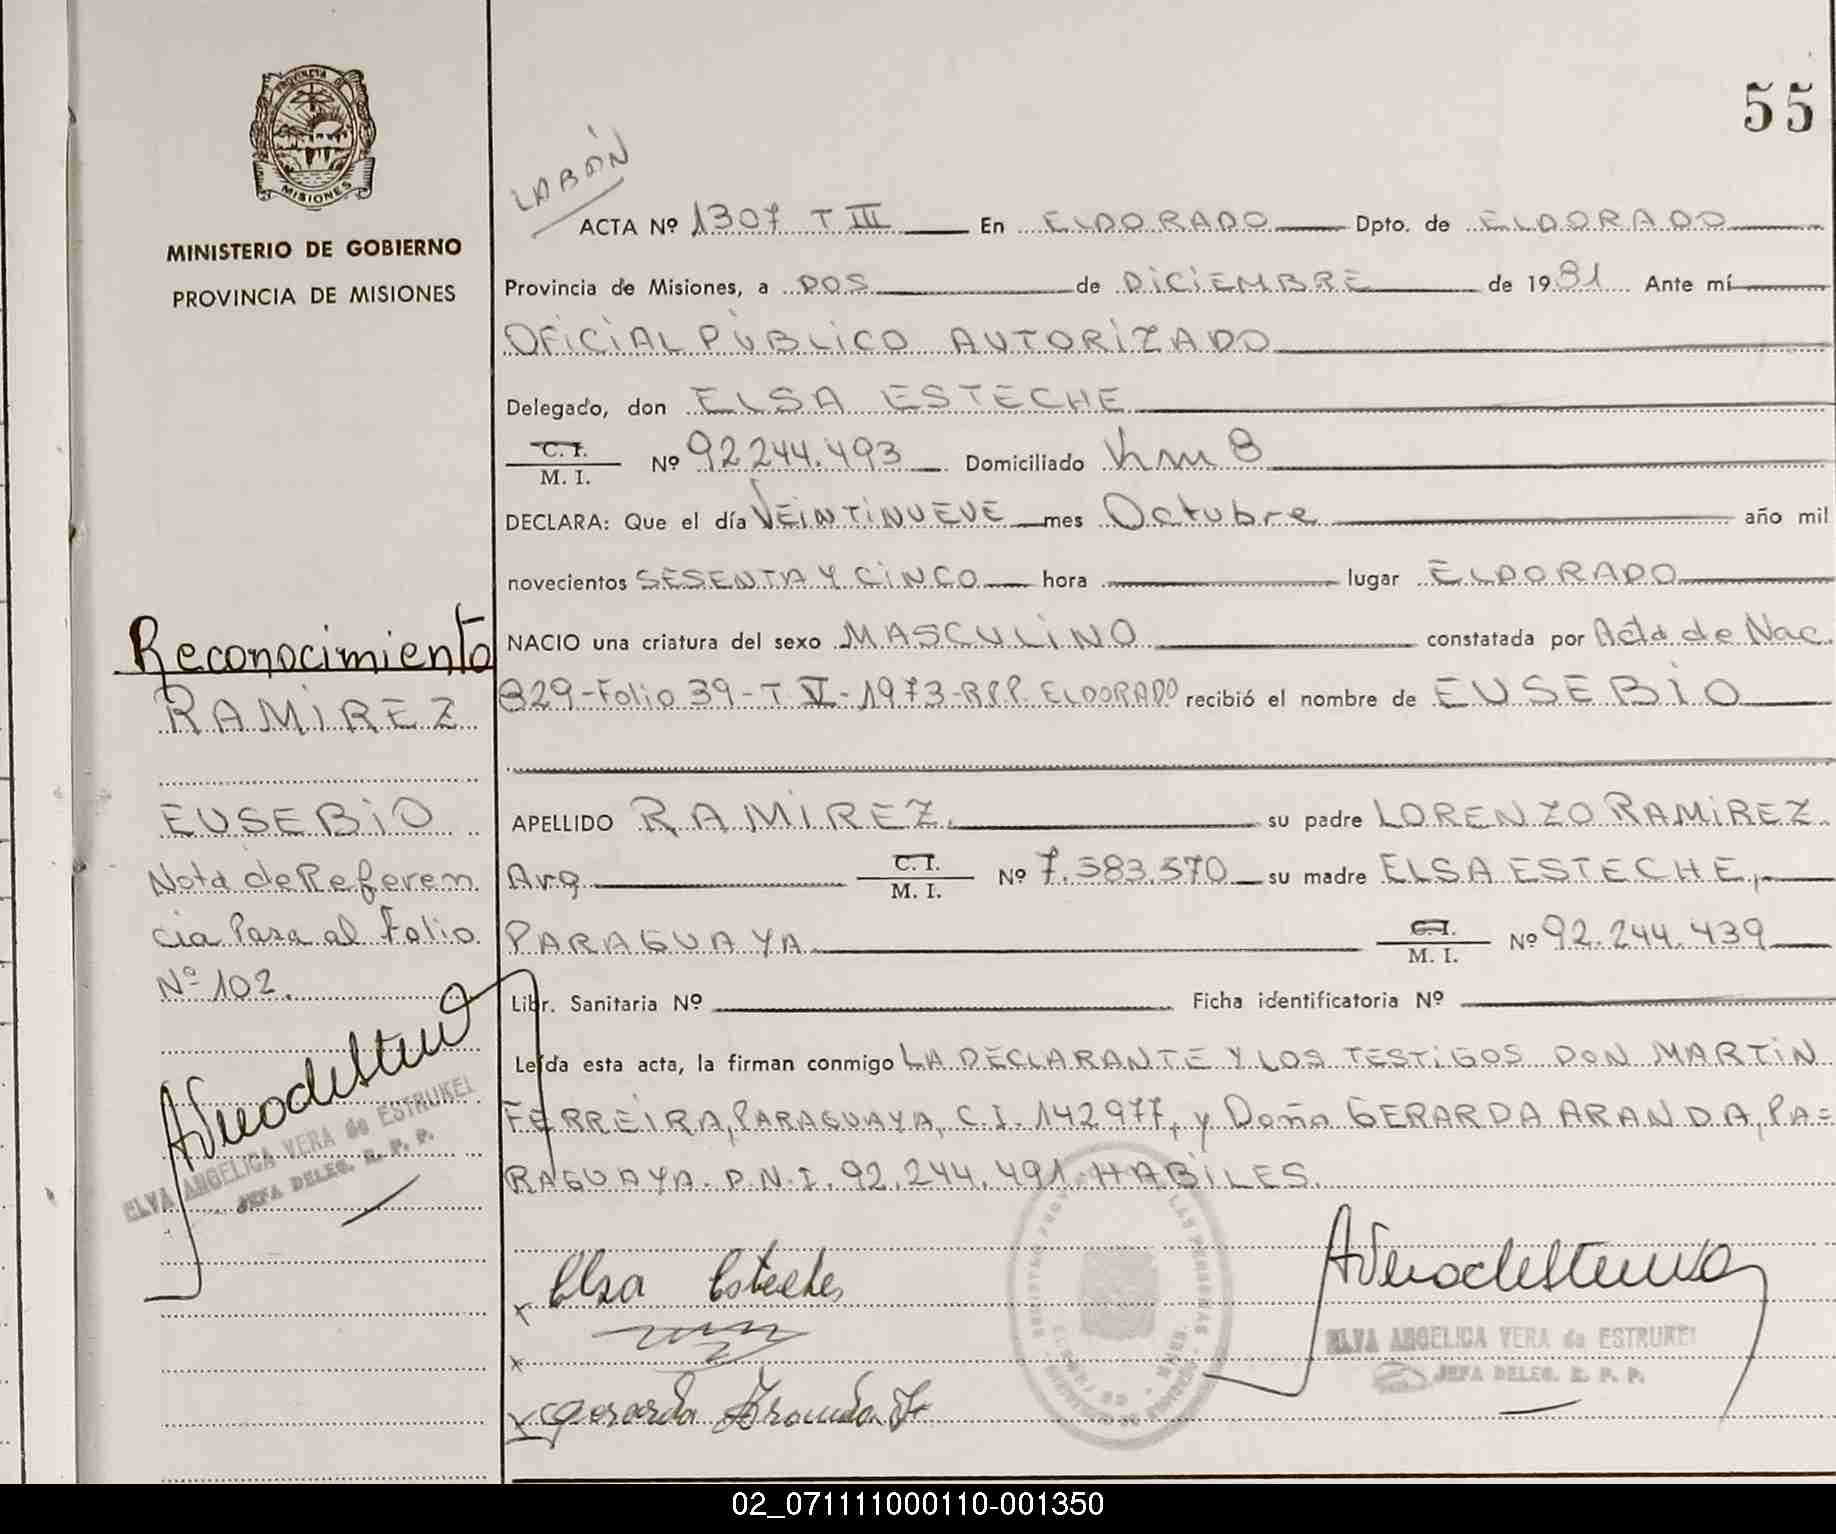 PROVINCIA DE
MISIONES
MINISTERIO DE GOBIERNO
PROVINCIA DE MISIONES
55
LABÓN
ACTA Nº 1307 T III En ELDORADO Dpto. de ELDORADO
Provincia de Misiones, a DOS de DiCiEMBRE de 1981 Ante mí
OFiCiAL PÚBLiCO AUTORiZADO
Delegado, don ELSA ESTECHE
C. I.
M. I. Nº 92 244.493 Domiciliado Km 8
DECLARA: Que el día VEiNTiNUEVE mes Octubre año mil
novecientos SESENTA Y CiNCO hora lugar ELDORADO
NACIO una criatura del sexo MASCULiNO constatada por Acta de Nac.
829-Folio 39-T V-1973-R.P.P. ELDORADO recibió el nombre de EUSEBiO
APELLIDO RAMiREZ. su padre LORENZO RAMiREZ.
Arg. C. I.
M. I. Nº 7.583.570 su madre ELSA ESTECHE,
PARAGUAYA C. I.
M. I. Nº 92.244.439
Libr. Sanitaria Nº Ficha identificatoria Nº
Leída esta acta, la firman conmigo LA DECLARANTE Y LOS TESTiGOS DON MARTiN
FERREiRA, PARAGUAYA, C.I. 142977, y Doña GERARDA ARANDA, PA=
RAGUAYA. D.N.I. 92.244.491-HABiLES.
Reconocimiento
RAMiREZ
EUSEBiO
Nota de Referen
cia Pasa al Folio
Nº 102.
ELVA ANGELICA VERA de ESTRUKEL
JEFA DELEG. R. P. P.
x Elsa Esteche
x
x Gerarda Aranda
ELVA ANGELICA VERA de ESTRUKEL
JEFA DELEG. R. P. P.
02_071111000110-001350